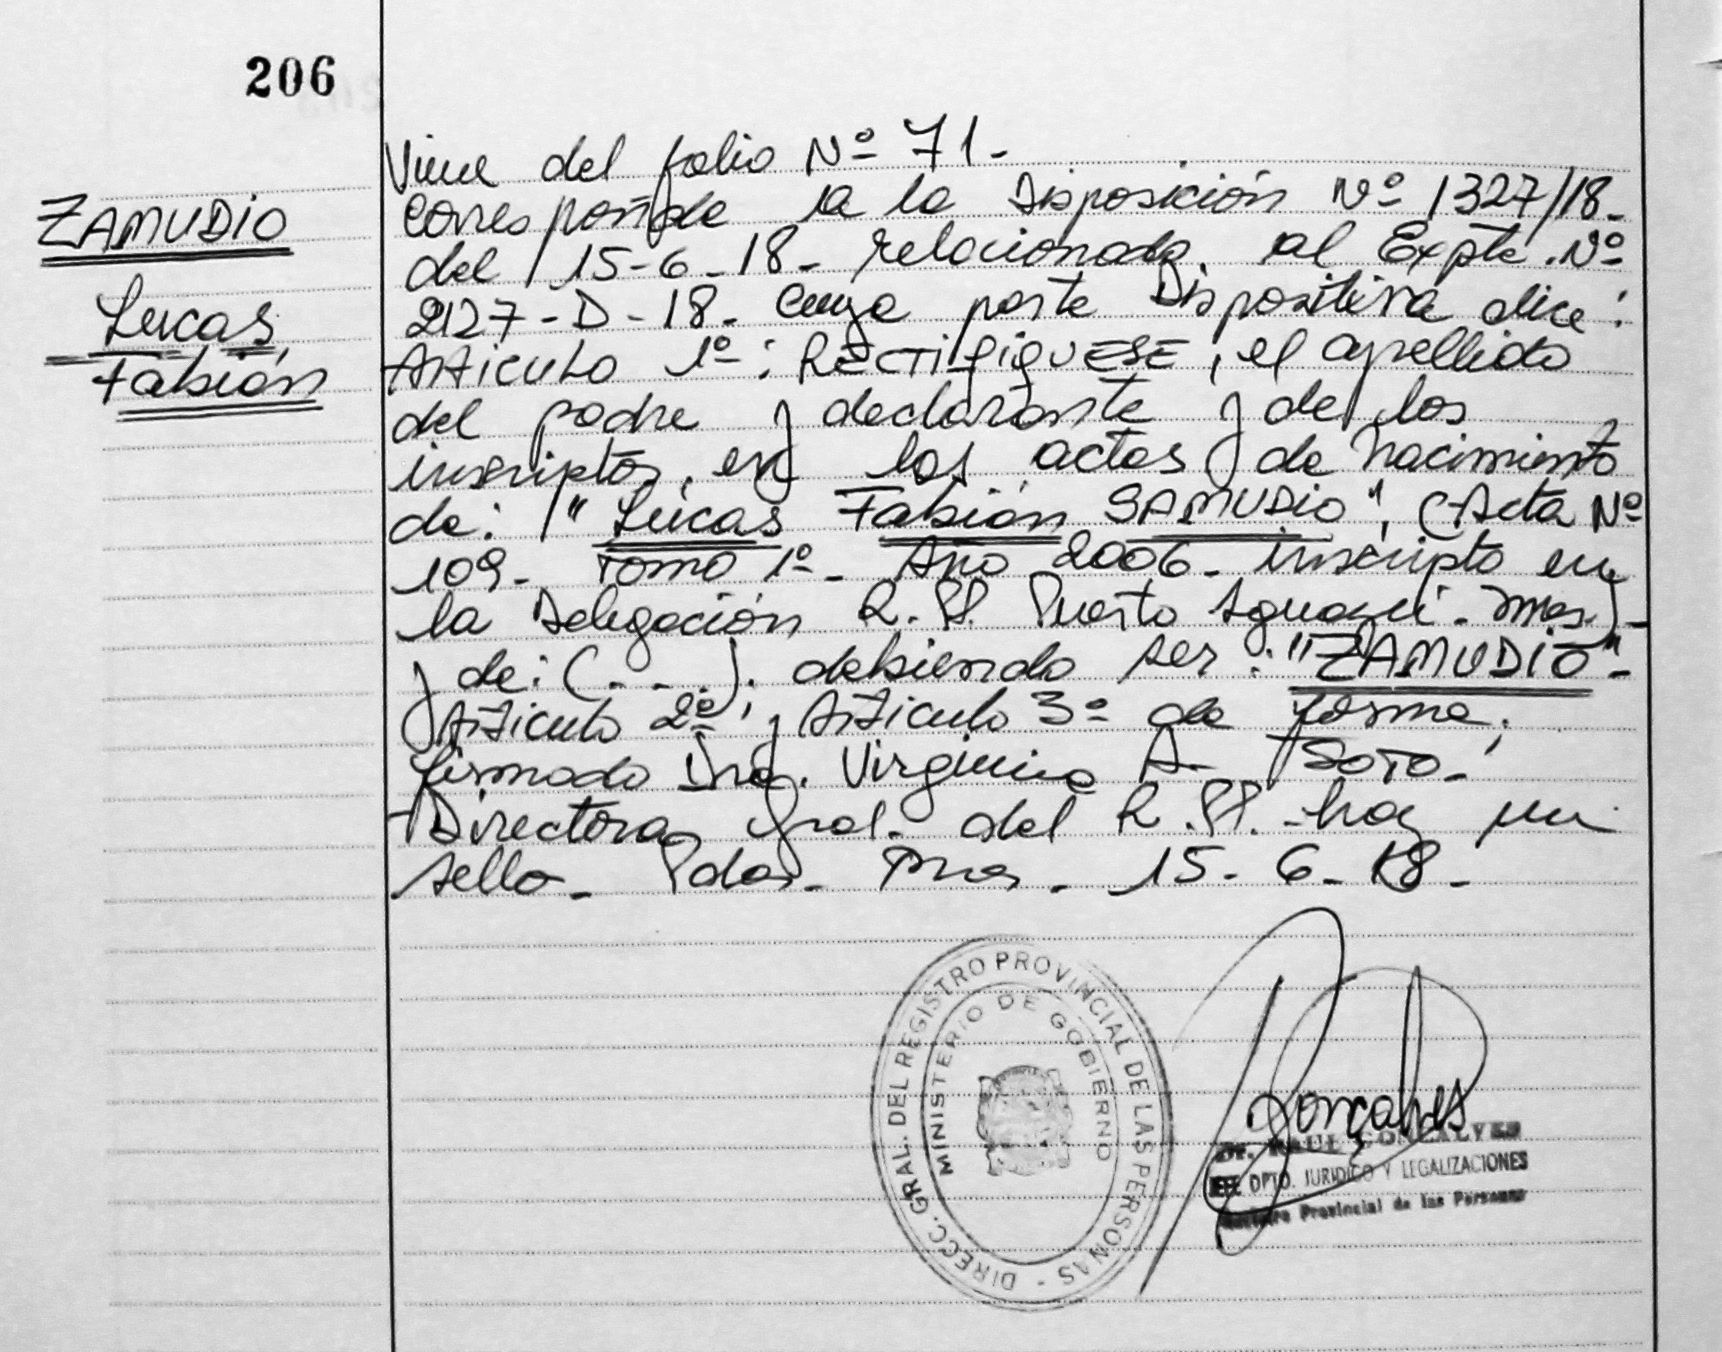 206
ZAMUDIO
Lucas
Fabián
Viene del folio Nº 71-
corresponde a la Disposición Nº 1327/18-
del 15-6-18- relacionada al Expte. Nº
2127-D-18- cuya parte Dispositiva dice:
Articulo 1º: RECTIFIQUESE, el apellido
del padre y declarante y de los
inscriptos, en las actas de nacimiento
de: "Lucas Fabián SAMUDIO", (Acta Nº
109- Tomo 1º- Año 2006- inscripto en
la Delegación R.P.P. Puerto Iguazú- Mnes)-
y de: (...). debiendo ser: "ZAMUDIO"-
Articulo 2º y Articulo 3º de forma.
firmado Dra. Virginia A. SOTO-
Directora Gral. del R.P.P. hay un
sello- Pdas- Mnes- 15-6-18-
DIRECC. GRAL. DEL REGISTRO PROVINCIAL DE LAS PERSONAS -
MINISTERIO DE GOBIERNO
Goncalves
Dr. RAUL GONCALVES
JEFE DPTO. JURIDICO Y LEGALIZACIONES
Registro Provincial de las Personas